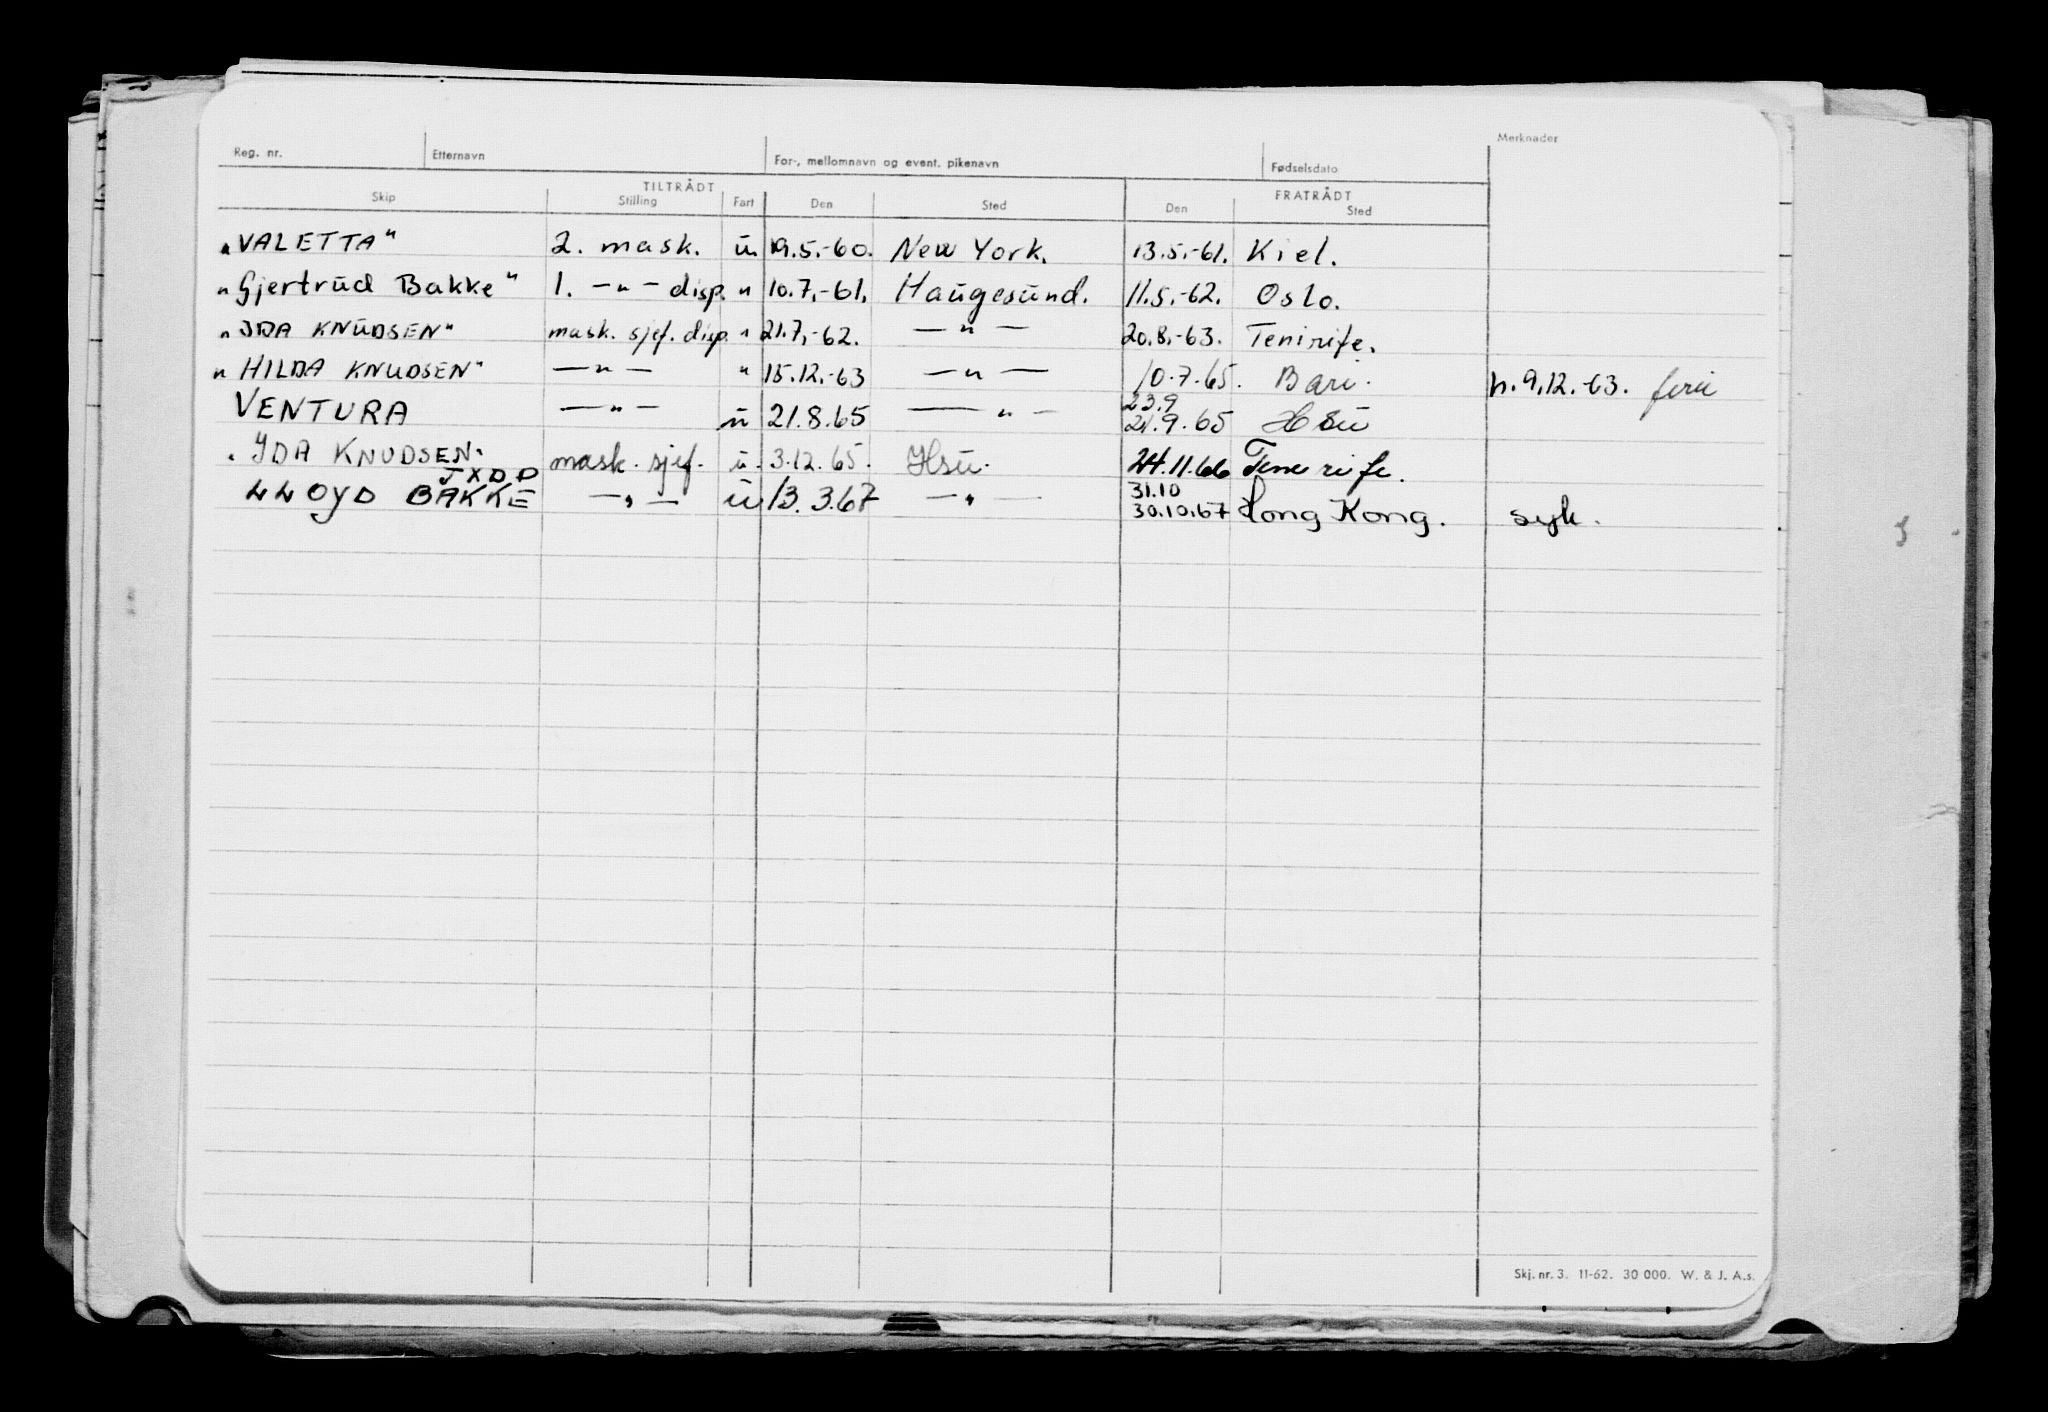 Reg. nr. Etternavn For-, mellomnavn og event. pikenavn Fødselsdato Merknader
TILTRÅDT FRATRÅDT
Skip Stilling Fart Den Sted Den Sted
"VALETTA" 2. mask. u. 19.5.-60. New York. 13.5.-61. Kiel.
"Gjertrud Bakke" 1. —"— disp. " 10.7.-61. Haugesund. 11.5.-62. Oslo.
"IDA KNUDSEN" mask. sjef. disp. " 21.7.-62. —"— 20.8.-63. Tenirife.
"HILDA KNUDSEN" —"— " 15.12.-63 —"— 10.7.65. Bari. h. 9.12.-63. ferie
VENTURA —"— u 21.8.65 —"— 23.9 21.9.65 Hsu
"IDA KNUDSEN" mask. sjef. u. 3.12.65. Hsu. 24.11.66 Tenerife.
JXDP
LLOYD BAKKE —"— u 13.3.67 —"— 31.10 30.10.67 Hong Kong. syk.
Skj. nr. 3. 11-62. 30 000. W. & J. A.s.